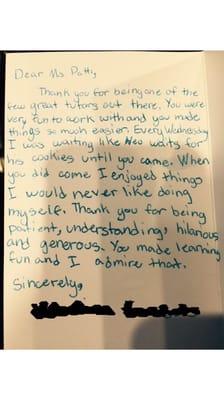 Dear Ms. Patty,
Thank you for being one of the
few great tutors out there. You were
very fun to work with and you made
things so much easier. Every Wednesday
I was waiting like Neo waits for
his cookies until you came. When
you did come I enjoyed things
I would never like doing
myself. Thank you for being
patient, understanding, hilarious
and generous. You made learning
fun and I admire that.
Sincerely,